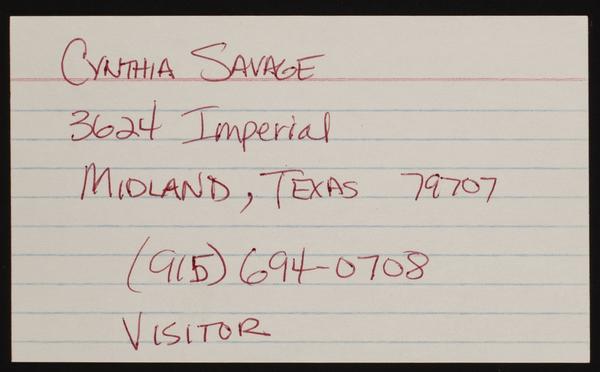 Cynthia Savage
3624 Imperial
Midland, Texas 79707
(915) 694-0708
Visitor